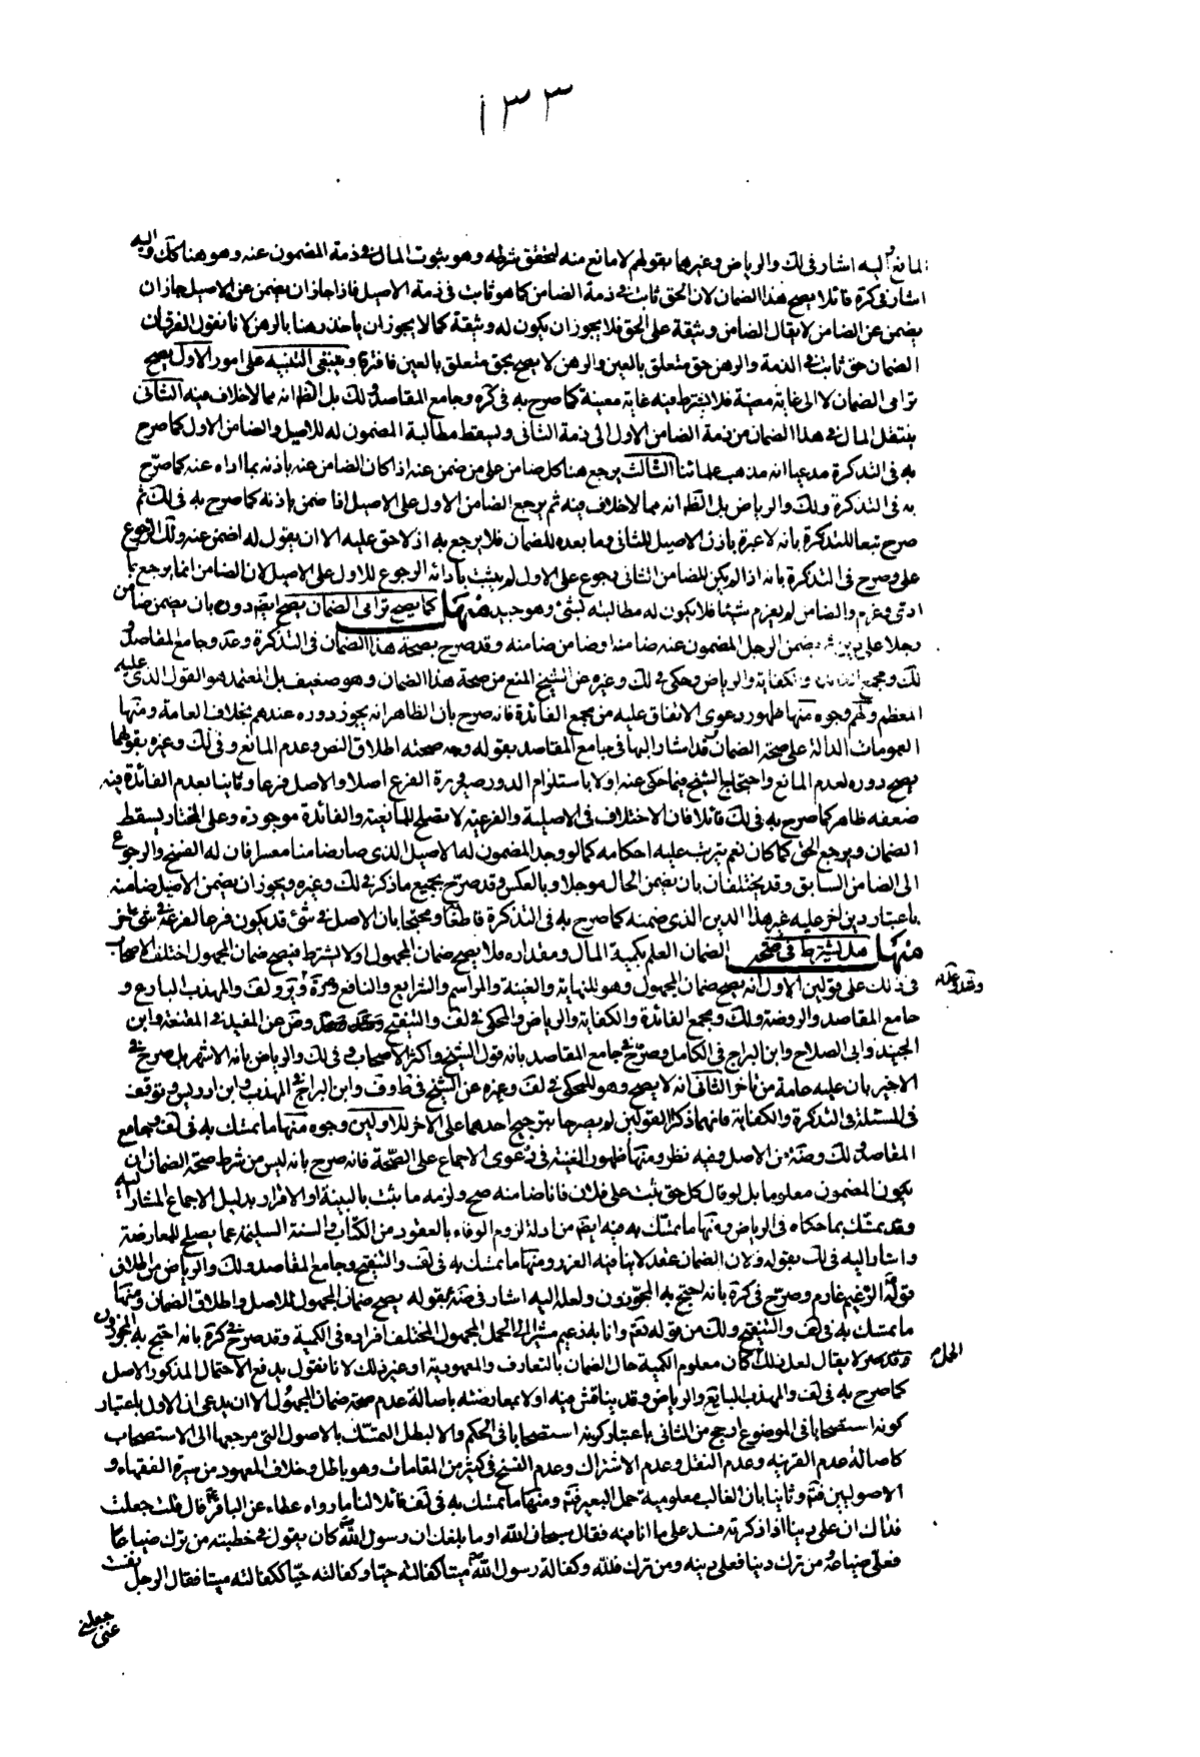 ١٣٣
المانع اليه اشار فى لك والرياض وغيرهما بقولهم لا مانع منه لتحقق شرطه وهو ثبوت المال فى ذمة المضمون عنه وهو هنا كك واليه
اشار فى كرة قائلا يصح هذا الضمان لان الحق ثابت فى ذمة الضامن كما هو ثابت فى ذمة الاصيل فاذا جاز ان يضمن عن الاصيل جاز ان
يضمن عن الضامن لا يقال الضامن وثيقة على الحق فلا يجوز ان يكون له وثيقة كما لا يجوز ان ياخذ رهنا بالرهن لانا نقول الفرق ان
الضمان حق ثابت فى الذمة والرهن حق متعلق بالعين والرهن لا يصح بحق متعلق بالعين فافترقا وينبغى التنبيه على امور الاول يصح
ترامى الضمان لا الى غاية معينة فلا يشترط فيه غاية معينة كما صرح به فى كرة وجامع المقاصد ولك بل الظ انه مما لا خلاف فيه الثانى
ينتقل المال فى هذا الضمان من ذمة الضامن الاول الى ذمة الثانى ويسقط مطالبة المضمون له للاصيل والضامن الاول كما صرح
به فى التذكرة مدعيا انه مذهب علمائنا الثالث يرجع هنا كل ضامن على من ضمن عنه اذا كان الضامن عنه باذنه بما اداه عنه كما صرح
به فى التذكرة ولك والرياض بل الظ انه مما لا خلاف فيه ثم يرجع الضامن الاول على الاصيل اذا ضمن باذنه كما صرح به فى لك ثم
صرح تبعا للتذكرة بانه لا عبرة باذن الاصيل للثانى وما بعده للضمان فلا يرجع به اذ لا حق عليه الا ان يقول له اضمن عنه ولك الرجوع
على وصرح فى التذكرة بانه اذا لم يكن للضامن الثانى رجوع على الاول لم يثبت بادائه الرجوع للاول على الاصيل لان الضامن انما يرجع بما
ادى وغرم والضامن لم يغرم شيئا فلا يكون له مطالبته بشئ وهو جيد منها كما يصح ترامى الضمان يصح ايضا دوره بان يضمن ضامن
رجلا على دين ثم يضمن الرجل المضمون عنه ضامنه او ضامن ضامنه وقد صرح بصحة هذا الضمان فى التذكرة وعد وجامع المقاصد و
لك ومجمع الفائدة والكفاية والرياض وحكى فى لك وغيره عن الشيخ المنع من صحة هذا الضمان وهو ضعيف بل المعتمد هو القول الذى عليه
المعظم ولهم وجوه منها ظهور دعوى الاتفاق عليه من مجمع الفائدة فانه صرح بان الظاهر انه يجوز دوره عندهم بخلاف العامة ومنها
العمومات الدالة على صحة الضمان وقد اشار اليها فى جامع المقاصد بقوله وجه صحته اطلاق النص وعدم المانع وفى لك وغيره بقولهما
يصح دوره لعدم المانع واحتجاج الشيخ فيما حكى عنه اولا باستلزام الدور صيرورة الفرع اصلا والاصل فرعا وثانيا بعدم الفائدة فيه
ضعفه ظاهر كما صرح به فى لك قائلا فان الاختلاف فى الاصلية والفرعية لا يصلح للمانعية والفائدة موجودة وعلى المختار يسقط
الضمان ويرجع الحق كما كان نعم يترتب عليه احكامه كما لو وجد المضمون له الاصيل الذى صار ضامنا معسرا فان له الفسخ والرجوع
الى الضامن السابق وقد يختلفان بان يضمن الحال مؤجلا وبالعكس وقد صرح بجميع ما ذكر فى لك وغيره ويجوز ان يضمن الاصيل ضامنه
باعتبار دين اخر عليه غير هذا الدين الذى ضمنه كما صرح به فى التذكرة قاطعا ومحتجا بان الاصل فى شئ قد يكون فرعا لفرعه فى شئ اخر
منها هل يشترط فى صحة الضمان العلم بكمية المال ومقداره فلا يصح ضمان المجهول او لا يشترط فيصح ضمان المجهول اختلف الاصحاب
فى ذلك على قولين الاول انه يصح ضمان المجهول وهو للنهاية والغنية والمراسم والشرايع والنافع ولف والمهذب البارع و
جامع المقاصد والروضة ولك ومجمع الفائدة والكفاية والرياض والمحكى فى لف والتنقيح وعن المفيد فى المقنعة وابن
الجنيد وابى الصلاح وابن البراج فى الكامل وصرح فى جامع المقاصد بانه قول الشيخ واكثر الاصحاب وفى لك والرياض بانه الاشهر بل صرح فى
الاخير بان عليه عامة من تاخر الثانى انه لا يصح وهو للمحكى فى لف وغيره عن الشيخ فى ط وف وابن البراج فى المهذب وابن ادريس وتوقف
فى المسئلة فى التذكرة والكفاية فانهما ذكرا القولين لم يصرحا بترجيح احدهما على الاخر للاولين وجوه منها ما تمسك به فى لف وجامع
المقاصد ولك وضة من الاصل وفيه نظر ومنها ظهور الغنية فى دعوى الاجماع على الصحة فانه صرح بانه ليس من شرط صحة الضمان ان
يكون المضمون معلوما بل لو قال كل حق يثبت على فلان فانا ضامنه صح ولزمه ما يثبت بالبينة او الاقرار بدليل الاجماع المشار اليه
وقد تمسك بما حكاه فى الرياض ومنها ما تمسك به فيه ايضا من ادلة لزوم الوفاء بالعقود من الكتاب والسنة السليمة عما يصلح للمعارضة
واشار اليه فى لك بقوله ولان الضمان عقد لا ينافيه الغرر ومنها ما تمسك به فى لف والتنقيح وجامع المقاصد ولك والرياض من اطلاق
قوله الزعيم غارم وصرح فى كرة بانه احتج به المجوزون ولعله اليه اشار فى ضة بقوله يصح ضمان المجهول للاصل واطلاق الضمان ومنها
ما تمسك به فى لف والتنقيح ولك من قوله تعم وانا به زعيم مشيرا الى الحمل المجهول المختلف افراده فى الكمية وقد صرح فى كرة بانه احتج به المجوزون
لا يقال لعل ذلك كان معلوم الكمية حال الضمان بالتعارف والمعهودية او غير ذلك لانا نقول يدفع الاحتمال المذكور الاصل
كما صرح به فى لف والمهذب البارع والرياض وقد يناقش فيه اولا بمعارضته باصالة عدم صحة ضمان المجهول الا ان يدعى ان الاول باعتبار
كونه استصحابا فى الموضوع ارجح من الثانى باعتبار كونه استصحابا فى الحكم والا لبطل التمسك بالاصول التى مرجعها الى الاستصحاب
كاصالة عدم القرينة وعدم النقل وعدم الاشتراك وعدم الفسخ فى كثير من المقامات وهو باطل وخلاف المعهود من سيرة الفقهاء و
الاصوليين فتم وثانيا بان الغالب معلومية حمل البعير فتم ومنها ما تمسك به فى لف قائلا لنا ما رواه عطاء عن الباقر قال قلت جعلت
فداك ان على دينا اذا ذكرته فسد على ما انا فيه فقال سبحان الله او ما بلغك ان رسول الله كان يقول فى خطبته من ترك ضياعا
فعلى ضياعه ومن ترك دينا فعلى دينه ومن ترك فلله وكفالة رسول الله ميتا ككفالته حيا وكفالته حيا ككفالته ميتا فقال الرجل نفست
عنى جعلنى